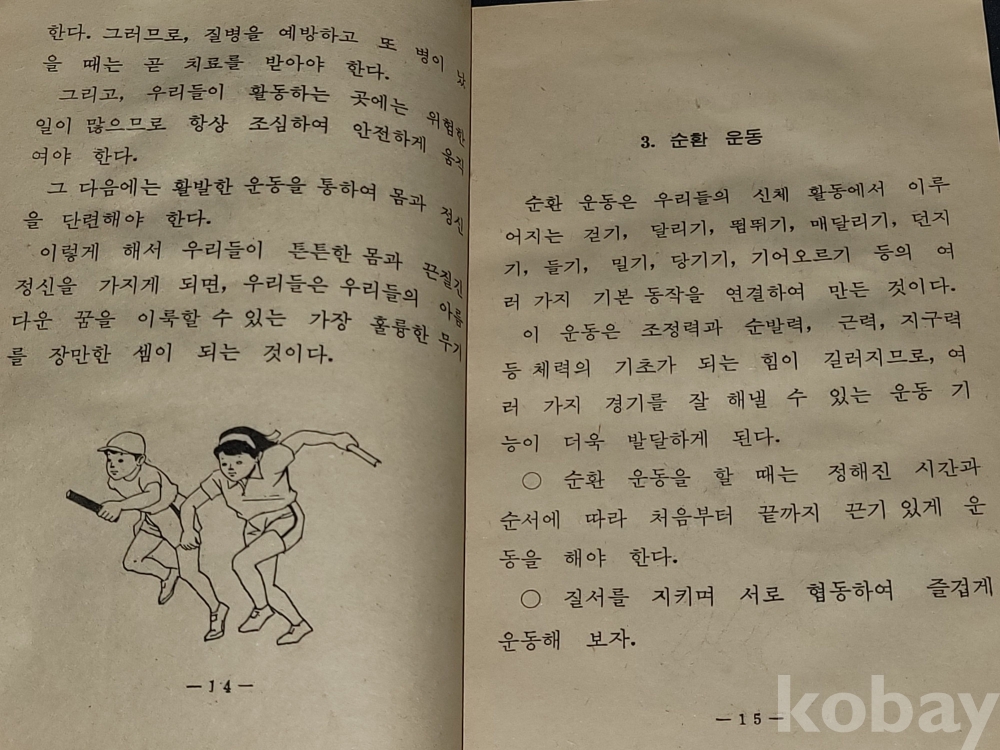 한다. 그러므로, 질병을 예방하고 또 병이 났
을 때는 곧 치료를 받아야 한다.
그리고, 우리들이 활동하는 곳에는 위험한
일이 많으므로 항상 조심하여 안전하게 움직
여야 한다.
그 다음에는 활발한 운동을 통하여 몸과 정신
을 단련해야 한다.
이렇게 해서 우리들이 튼튼한 몸과 끈질긴
정신을 가지게 되면, 우리들은 우리들의 아름
다운 꿈을 이룩할 수 있는 가장 훌륭한 무기
를 장만한 셈이 되는 것이다.
— 14 —
3. 순환 운동
순환 운동은 우리들의 신체 활동에서 이루
어지는 걷기, 달리기, 뜀뛰기, 매달리기, 던지
기, 들기, 밀기, 당기기, 기어오르기 등의 여
러 가지 기본 동작을 연결하여 만든 것이다.
이 운동은 조정력과 순발력, 근력, 지구력
등 체력의 기초가 되는 힘이 길러지므로, 여
러 가지 경기를 잘 해낼 수 있는 운동 기
능이 더욱 발달하게 된다.
○ 순환 운동을 할 때는 정해진 시간과
순서에 따라 처음부터 끝까지 끈기 있게 운
동을 해야 한다.
○ 질서를 지키며 서로 협동하여 즐겁게
운동해 보자.
— 15 —
kobay